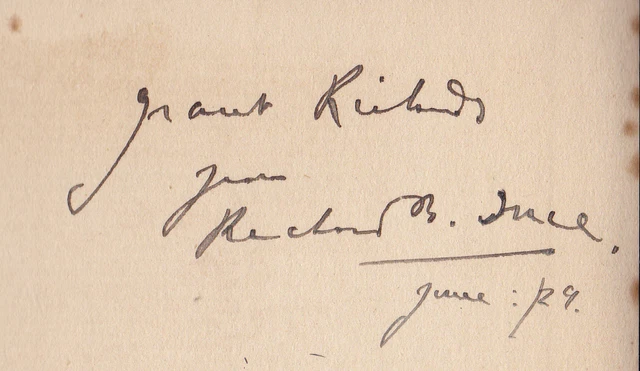 Grant Richards
from
Richard B. Ince.
June: /29.